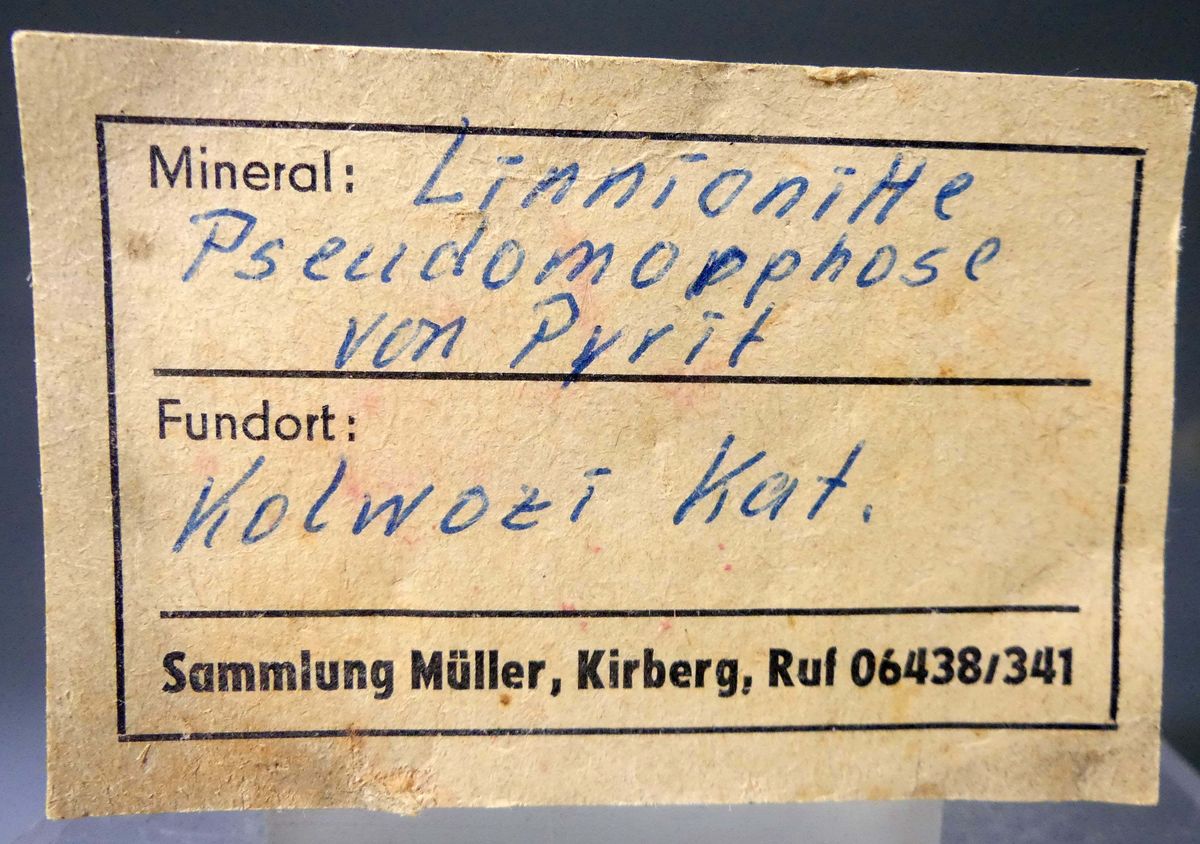 Mineral: Linnionitte
Pseudomorphose
von Pyrit
Fundort:
Kolwozi Kat.
Sammlung Müller, Kirberg, Ruf 06438/341